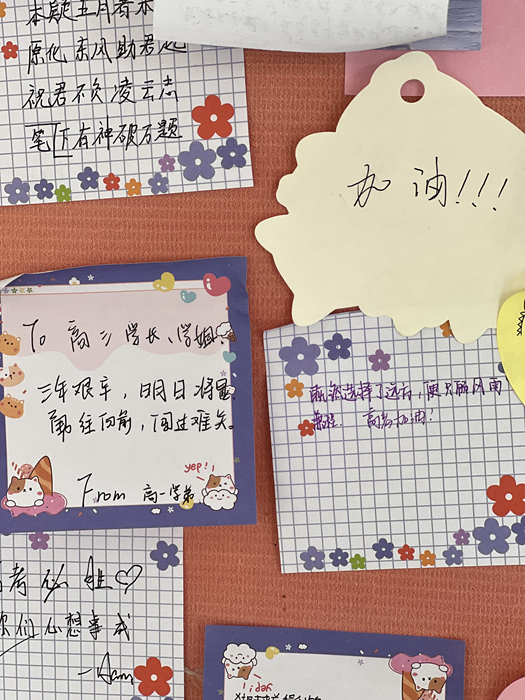 原化东风助君起
祝君不负凌云志
笔下有神破万题
加油!!!
To 高三学长、学姐:
三年艰辛，明日将最
勇往向前，闯过难关。
yep!
From 高一学弟
既然选择了远方，便只顾风雨
兼程. 高考加油!
考必胜♡
你们心想事成